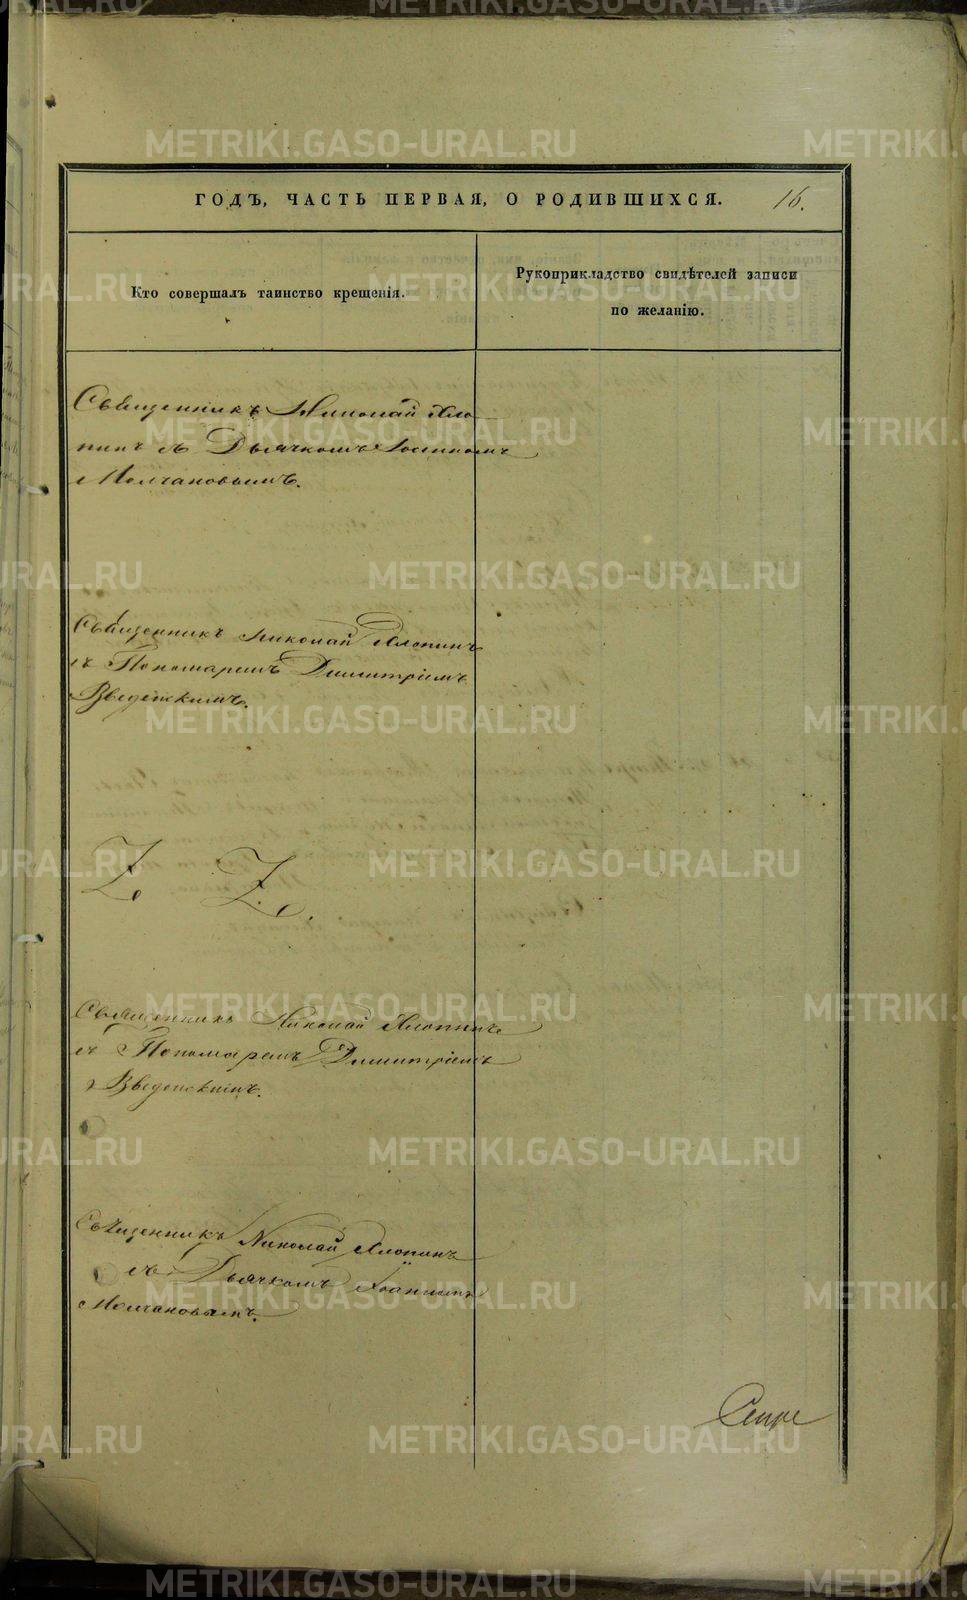 METRIKI.GASO-URAL.RU
ГОДЪ, ЧАСТЬ ПЕРВАЯ, О РОДИВШИХСЯ. 16.
Кто совершалъ таинство крещенія.
Рукоприкладство свидѣтелей записи
по желанію.
Священникъ Николай Хло
пинъ съ Дьячкомъ Іоанномъ
Молчановымъ.
Священникъ Николай Хлопинъ
съ Пономаремъ Димитріемъ
Введенскимъ.
Священникъ Николай Хлопинъ
съ Пономаремъ Димитріемъ
Введенскимъ.
Священникъ Николай Хлопинъ
съ Дьячкомъ Іоанномъ
Молчановымъ.